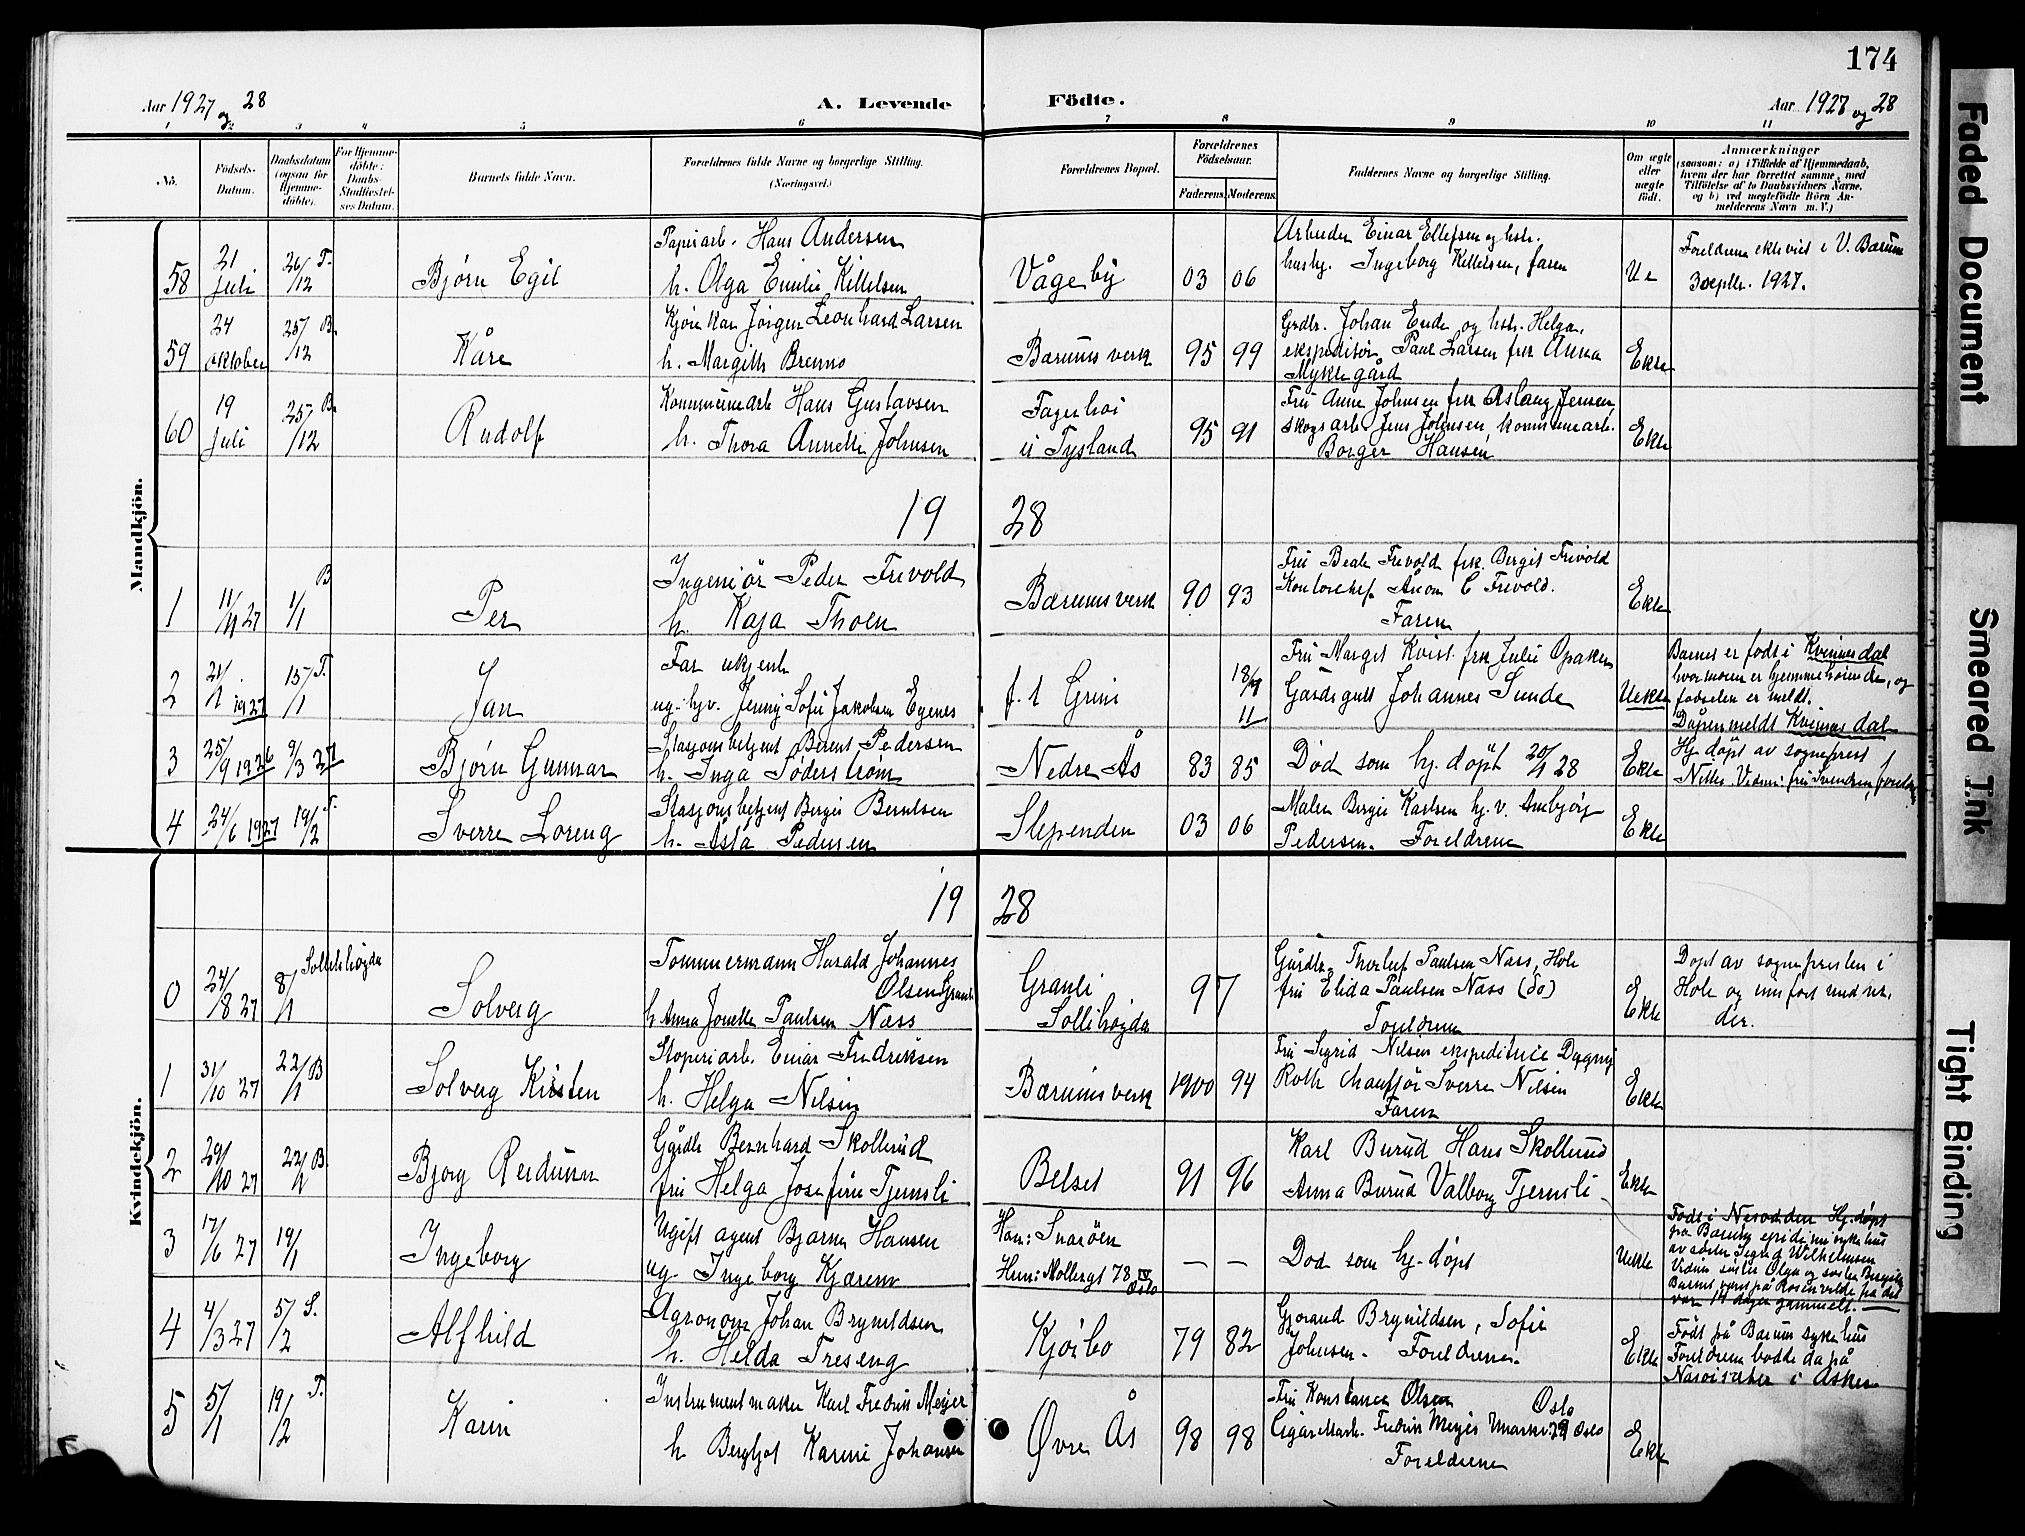 174
Aar 1927 og 28
A. Levende Födte.
Aar 1927 og 28
1 2 3 4 5 6 7 8 9 10 11
No.
Födsels-Datum.
Daabsdatum (ogsaa for Hjemme-döbte).
For Hjemme-döbte: Daabs-Stadfæstel-ses Datum.
Barnets fulde Navn.
Forældrenes fulde Navne og borgerlige Stilling. (Næringsvei.)
Forældrenes Bopæl.
Forældrenes Födselsaar.
Faderens. Moderens.
Faddernes Navne og borgerlige Stilling.
Om ægte eller uægte födt.
Anmærkninger (saasom: a) i Tilfælde af Hjemmedaab, hvem der har forrettet samme, med Tilföielse af to Daabsvidners Navne, og b) ved uegtefödte Börn An-melderens Navn m. V.)
Mandkjön.
58 21 Juli 26/12 T. Bjørn Egil
Papirarb. Hans Andersen
h. Olga Emilie Kittelsen
Vågeby 03 06
Arbeider Einar Ellefsen og hstr.
husby. Ingeborg Kittelsen, faren
Ue
Foreldrene ekteviet i V. Bærum
3 septbr. 1927.
59 24 oktober 25/12 B. Kåre
Kjørekar Jørgen Leonhard Larsen
h. Margith Brenno
Bærums verk 95 99
Grdbr. Johan Ende og hstr. Helga,
ekspeditør Paul Larsen frk Anna
Myklegård
Ekte
60 19 Juli 25/12 B. Rudolf
Kommunearb Hans Gustavsen
h. Thora Annette Johnsen
Fagerhøi
i Tysland 95 91
Fru Anne Johnsen frk Aslaug Jensen,
skogsarb. Jens Johnsen, kommunearb.
Borger Hansen
Ekte
19 28
1 11/11 27 1/1 B Per
Ingeniør Peder Frivold
h. Kaja Thoen
Bærums verk 90 93
Fru Beate Frivold frk. Bergit Frivold
Kontorchef Aron C Frivold.
Faren
Ekte
2 21/1 1927 15/1 T. Jan
Far ukjent
ug. hjv. Jenny Sofie Jakobsen Egenes
f. t Grini 18/9 11
Fru Margit Kvist frk Julie Opaker
Gårdsgutt Johannes Sunde
Uekte
Barnet er født i Kvinesdal
hvor moren er hjemmehørende, og
fødselen er meldt.
Dåpen meldt Kvinesdal
3 25/9 1926 9/3 27 Bjørn Gunnar
Stasjonsbetjent Berent Pedersen
h. Inga Søderstrøm
Nedre Ås 83 85
Død som hj. døpt 20/1 28
Ekte
Hj. døpt av sogneprest
4 24/6 1927 19/2 T. Sverre Loreng
Stasjonsbetjent Birger Berntsen
h. Åsta Pedersen
Slependen 03 06
Maler Birger Karlsen hj. v. Ambjørg
Pedersen. Foreldrene
Ekte
Kvindekjön.
19 28
0 24/8 27 8/1 Sollihøgda Solveig
Tømmermann Harald Johannes
Olsen Granli
h. Anna Jonette Paulsen Næss
Granli
Sollihøgda 97
Gårdbr. Thorleif Paulsen Næss, Hole
fru Elida Paulsen Næss (do)
Foreldrene
Ekte
Døpt av sognepresten i
Hole og innført under
der.
1 31/10 27 22/1 B Solveig Kirsten
Støperiarb. Einar Fredriksen
h. Helga Nilsen
Bærums verk 1900 94
Fru Sigrid Nilsen ekspeditrice Dagny
Roth Chauffør Sverre Nilsen
Faren
Ekte
2 29/10 27 22/1 B. Bjørg Reidunn
Gårdbr Bernhard Skollerud
fru Helga Josefine Tjernsli
Belset 91 96
Karl Burud Hans Skollerud
Anna Burud Valborg Tjernsli
Ekte
3 17/6 27 19/1 Ingeborg
Ugift agent Bjarne Hansen
ug. Ingeborg Kjærem
Han: Snarøen
Hun: Møllergt 78 IV Oslo
— —
Død som hj. døpt
Uekte
Født i Nesodden Hj. døpt
på Bærums epidemisykehus
av søster Sigrid Wilhelmsen
Vidner søster Olga og søster Bergslie
Barnet vært på Rosenvilde fra det
var 14 dager gammelt.
4 4/3 27 5/2 S. Alfhild
Agronom Johan Brynildsen
h. Helda Treseng
Kjørbo 79 82
Gjørand Brynildsen, Sofie
Johnsen. Foreldrene.
Ekte
Født på Bærum sykehus
Foreldrene bodde da på
i Asker
5 5/1 19/2 T. Karin
Instrumentmaker Karl Fredrik Meyer
h Bergljot Karine Johansen
Øvre Ås 98 98
Fru Konstance Olsen Oslo
Cigarettarb. Fredrik Meyer Markv. 79 Oslo
Foreldrene
Ekte
Faded Document
Smeared Ink
Tight Binding